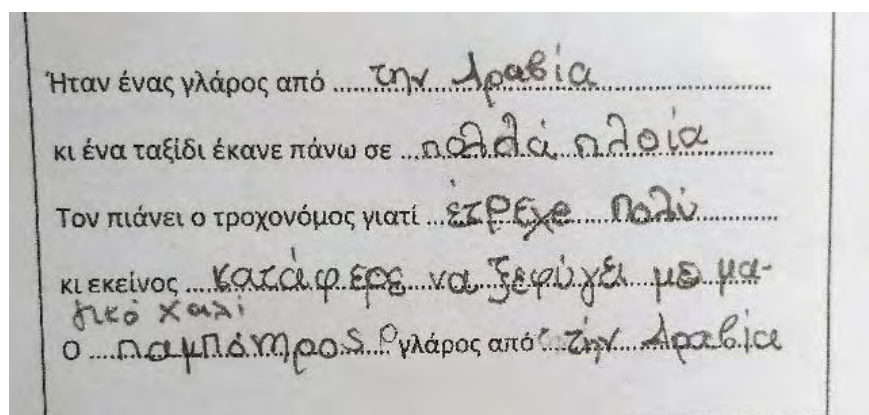 Ήταν ένας γλάρος από ....την Αραβία....
κι ένα ταξίδι έκανε πάνω σε ...πολλά πλοία...
Τον πιάνει ο τροχονόμος γιατί ...έτρεχε πολύ...
κι εκείνος ....κατάφερε να ξεφύγει με μα-
γικό χαλί
ο ....παμπόνηρος ο γλάρος από ...την Αραβία